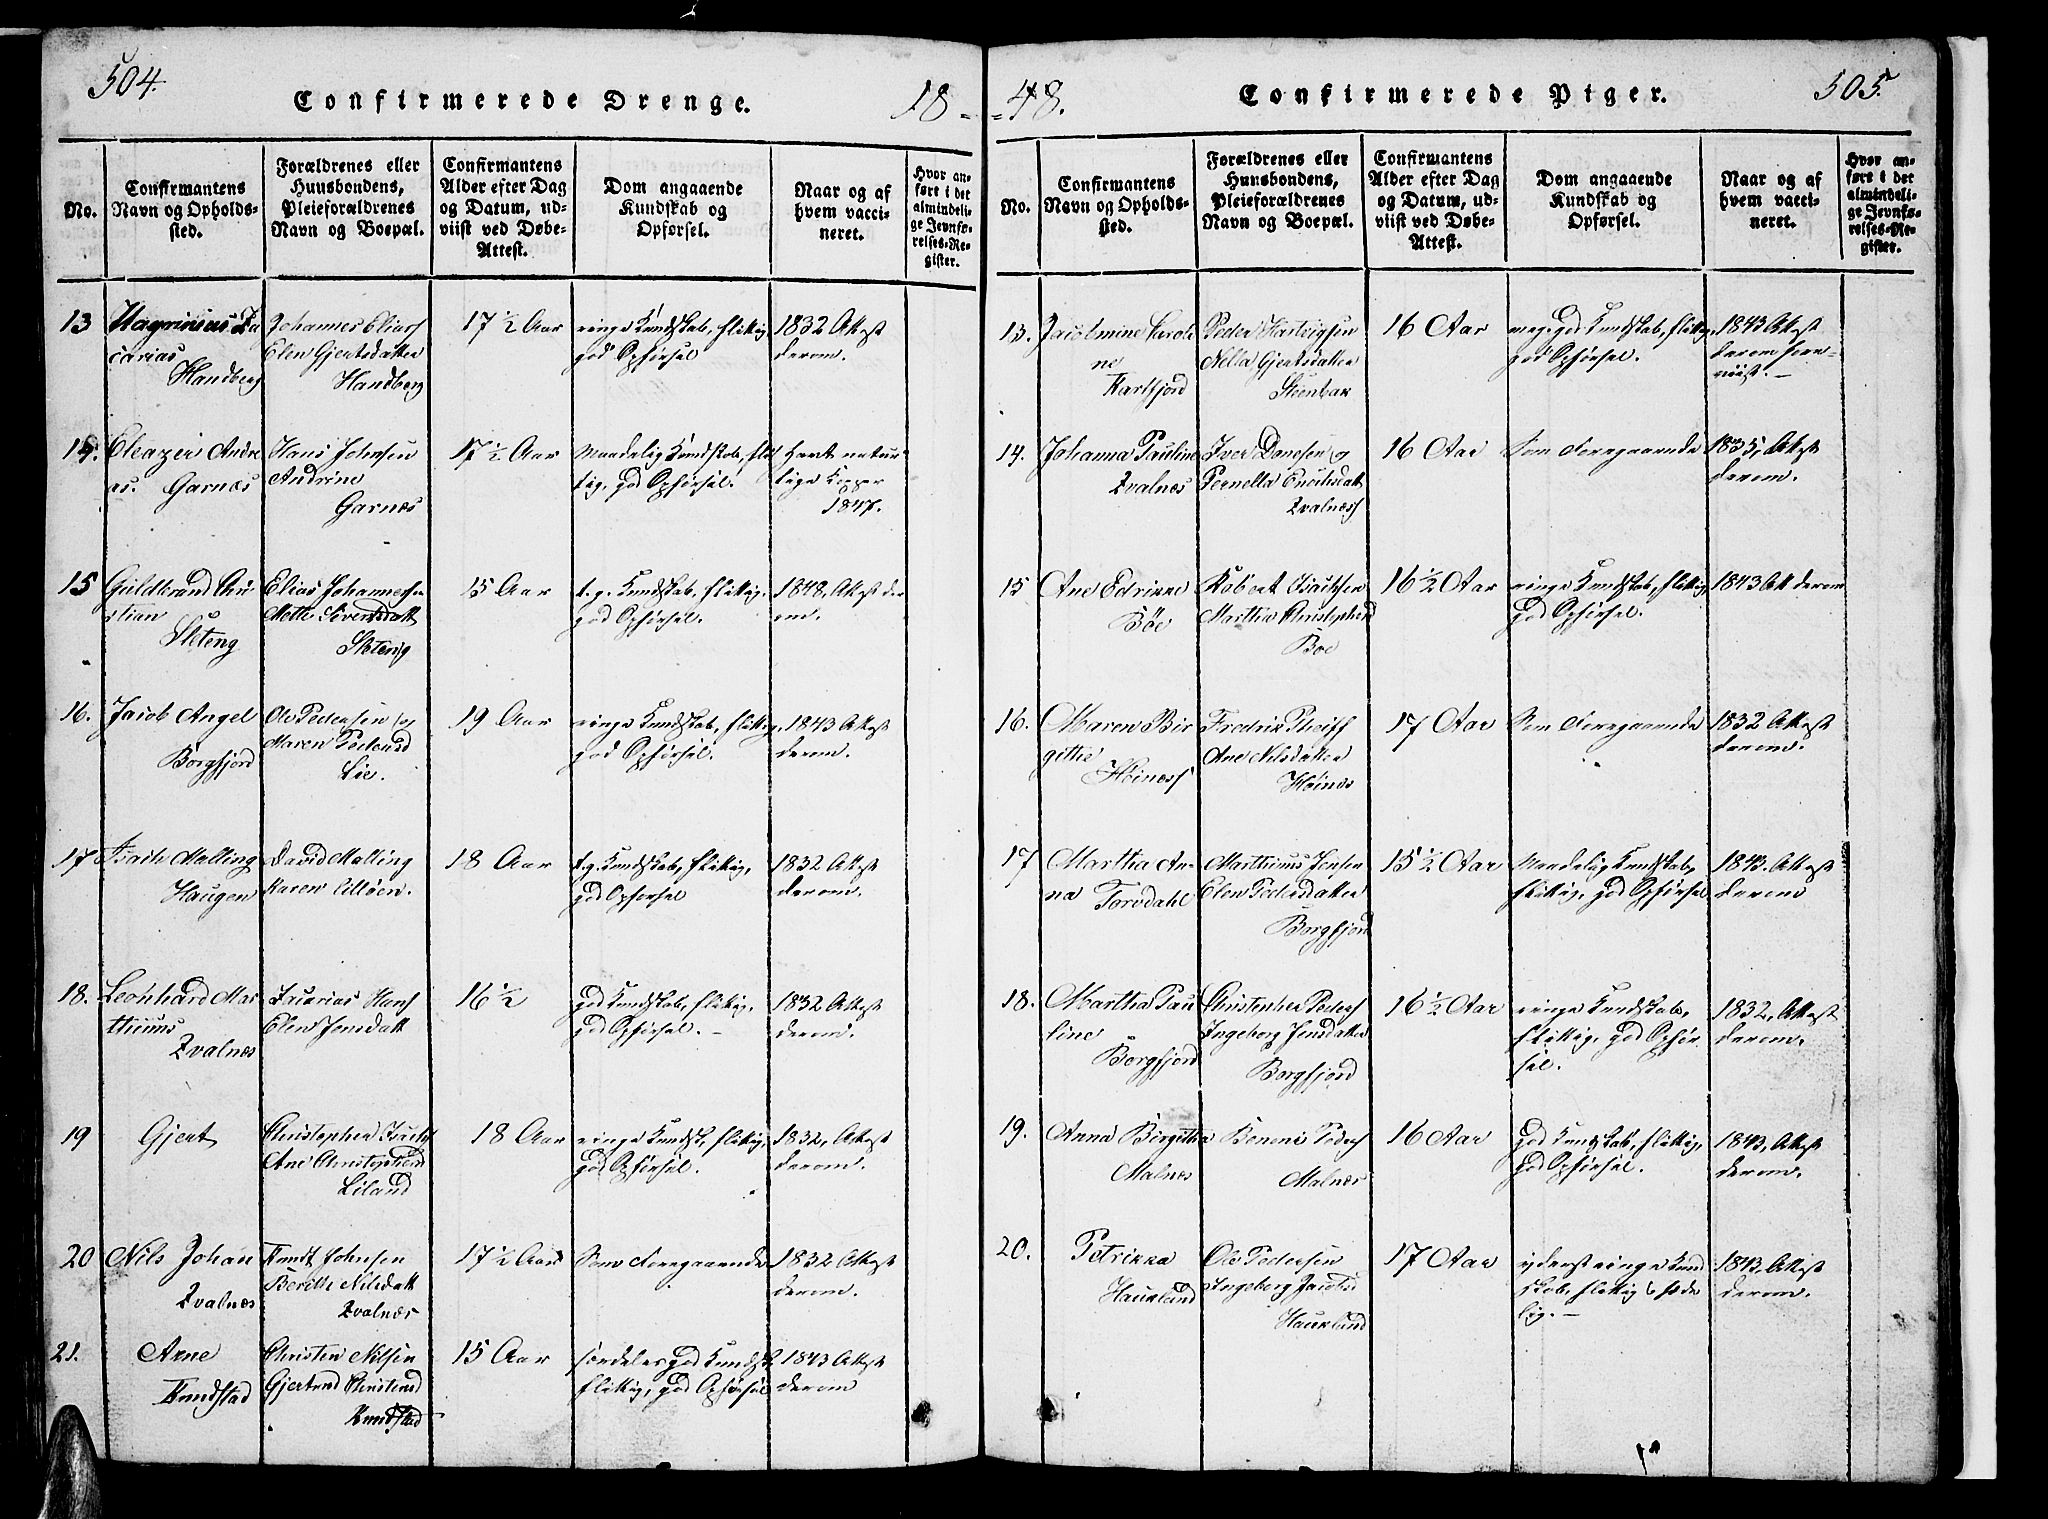 504.
Confirmerede Drenge.
18-
No.
Confirmantens
Navn og Opholds-
sted.
Forældrenes eller
Huusbondens,
Pleieforældrenes
Navn og Boepæl.
Confirmantens
Alder efter Dag
og Datum, ud-
viist ved Døbe-
Attest.
Dom angaaende
Kundskab og
Opførsel.
Naar og af
hvem vacci-
neret.
Hvor an-
ført i det
almindeli-
ge Jevnfø-
relses-Re-
gister.
13
carias
Handberg
Johannes Eliass
Elen Gjertsdatter
Handberg
17 1/2 Aar
ringe Kundskab, flittig
god Opførsel
1832 Attest
derom.
14.
Eleazer Andre
as. Garnes
Hans Johnsen
Andrine
Garnæs
17 1/2 Aar
Maadelig Kundskab, flit
tig, god Opførsel.
Havt natur
lige Kopper
1847.
15
Guldbrand Chri
stian
Skteng
Elias Johannesen
Mette Sivertsdatt
Skteng
15 Aar
t. g. Kundskab, flittig,
god Opførsel.
1848, Attest der
om.
16.
Jacob Angel
Borgfjord
Ole Pedersen og
Maren Pedersd
Lie.
19 Aar
ringe Kundskab, flittig,
god Opførsel.
1843 Attest
derom.
17
Isach Malling
Haugen
David Malling
Karen
18 Aar
t. g. Kundskab, flittig,
god Opførsel
1832 Attest
derom.
18.
Leonhard Mar
thinus
Zvalnes
Zacarias Hans
Elen Jensdatt
16 1/2
god Kundskab, flittig,
god Opførsel. -
1832 Attest
derom.
19
Gjert
Christopher Isachs
Ane Christophersd
Liland
18 Aar
ringe Kundsk, flittig,
god Opførsel.
1832, Attest
derom.
20
Nils Johan
Zvalnæs
Knudt Johnsen
Berethe Nilsdatt
Zvalnæs
17 1/2 Aar
Som Foregaaende
1832 Attest
derom.
21.
Arne
Knudstad
Christen Nilsen
Gjertrud Christensd
Knudstad
15 Aar
særdeles god Kundsk
flittig, god Opførsel
1843 Attest
derom
-48.
Confirmerede Piger.
505.
No.
Confirmantens
Navn og Opholds-
sted.
Forældrenes eller
Huusbondens,
Pleieforældrenes
Navn og Boepæl.
Confirmantens
Alder efter Dag
og Datum, ud-
viist ved Døbe-
Attest.
Dom angaaende
Kundskab og
Opførsel.
Naar og af
hvem vacci-
neret.
Hvor an-
ført i det
almindeli-
ge Jevnfø-
relses-Re-
gister.
13.
Jacobmine Caroli
ne
Kartfjord
Peder Hartvigsen
Nella Gjertsdatter
Steenbak
16 Aar
meg. god Kundskab, flittig
god Opførsel.
1843 Attest
derom frem-
viist. -
14.
Johanna Pauline
Zvalnes
Iver Danelsen og
Pernella
Zvalnæss
16 Aar
Som Foregaaende
1835, Attest
derom.
15
Ane Edrikke
Böe
Robert Isachsen
Martha Christophersd
Boe
16 1/2 Aar
ringe Kundskab, flittig,
god Opførsel.
1843 Att derom
16.
Maren Bir
gitte
Høinæss
Fredrik
Ane Nilsdatter
Høinæs
17 Aar
Som Foregaaende
1832 Attest
derom.
17
Martha An-
na Torvdahl
Marthinus Jensen
Elen Pedersdatter
Borgfjord
15 1/2 Aar
Maadelig Kundskab,
flittig, god Opførsel
1843. Attest
derom
18.
Martha Pau
line
Borgfjord
Christopher Peders
Ingeborg Jensdatter
Borgfjord
16 1/2 Aar
ringe Kundskab,
flittig, god Opfør
sel.
1832, Attest
derom.
19.
Anna Birgitha
Malnes
Benoni Peders
Malnæs
16 Aar
god Kundskab, flittig,
god Opførsel.
1843, Attest
derom.
20.
Petrikka
Haukland
Ole Pedersen
Ingeborg Jacobsd
Haukland
17 Aar
yderst ringe Kund
skab, flittig & sæde
lig. -
1843, Attest
derom.